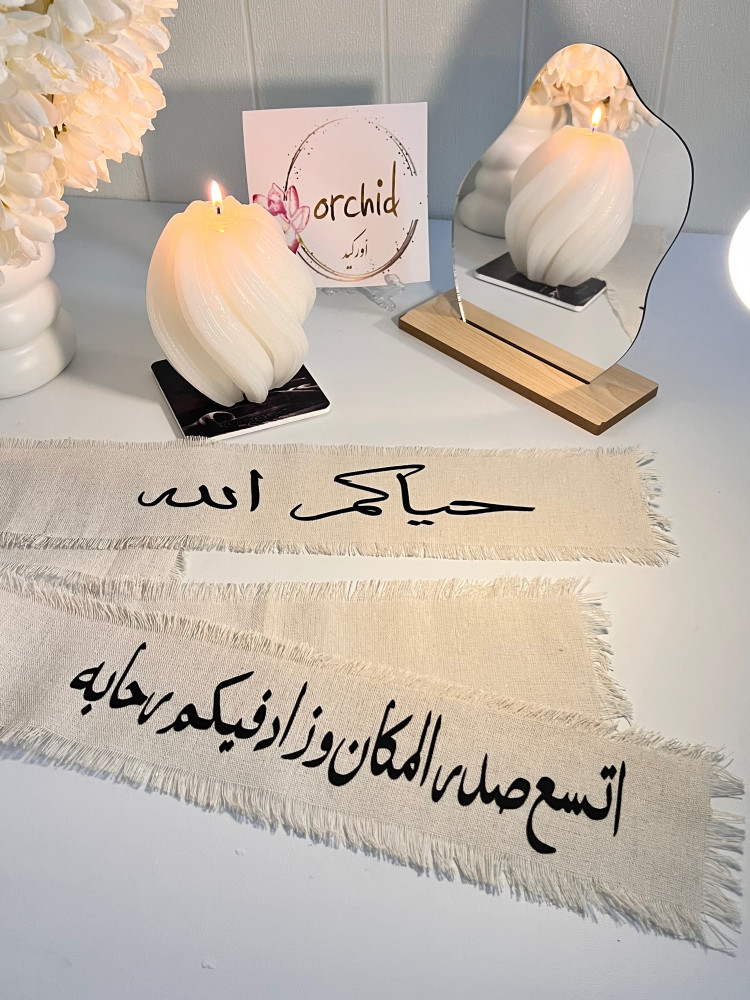 orchid
أوركيد
حياكم الله
اتسع صدر المكان وزاد فيكم رحابه